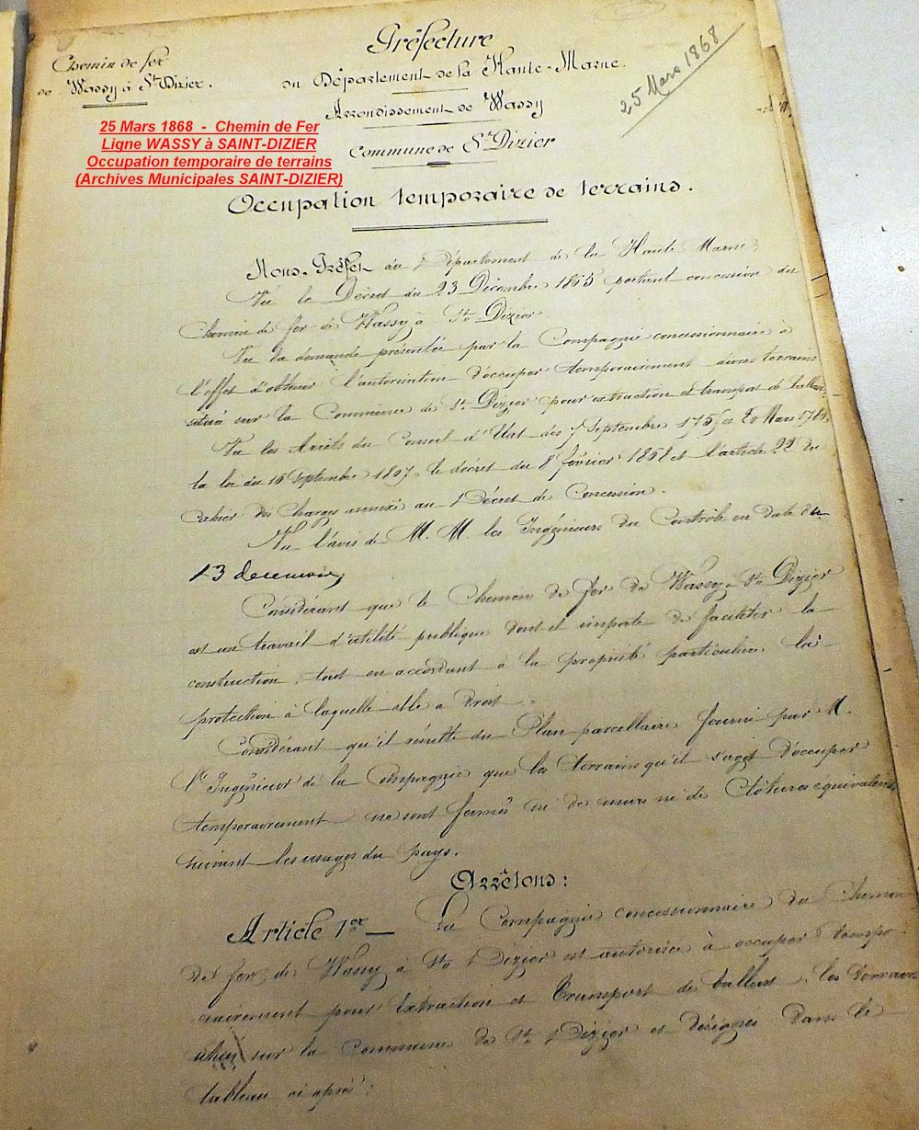 Chemin de fer
de Wassy à St Dizier.
Préfecture
du Département de la Haute-Marne.
Arrondissement de Wassy
Commune de St Dizier
25 Mars 1868
25 Mars 1868 - Chemin de Fer
Ligne WASSY à SAINT-DIZIER
Occupation temporaire de terrains
(Archives Municipales SAINT-DIZIER)
Occupation temporaire de terrains.
Nous, Préfet du Département de la Haute Marne,
Vu le Décret du 23 Décembre 1865 portant concession du
Chemin de fer de Wassy à St Dizier.
Vu la demande présentée par la Compagnie concessionnaire à
l'effet d'obtenir l'autorisation d'occuper temporairement divers terrains
situés sur la Commune de St Dizier pour extraction et transport de ballast,
Vu les Arrêts du Conseil d'Etat des 7 Septembre 1755 et 20 Mars 1780,
la loi du 16 Septembre 1807, le décret du 8 février 1868 et l'article 22 du
cahier des charges annexé au Décret de Concession.
Vu l'avis de M. M. les Ingénieurs du Contrôle en date du
13
Considérant que le Chemin de fer de Wassy à St Dizier
est un travail d'utilité publique dont il importe de faciliter la
construction, tout en accordant à la propriété particulière la
protection à laquelle elle a Droit.
Considérant qu'il résulte du Plan parcellaire fourni par M.
l'Ingénieur de la Compagnie que les terrains qu'il s'agit d'occuper
temporairement ne sont fermés ni de murs ni de Clôtures équivalentes
suivant les usages du pays.
Arrêtons:
Article 1er — La Compagnie concessionnaire du Chemin
de fer de Wassy à St Dizier est autorisée à occuper tempo-
rairement pour Extraction et Transport de ballast, les terrains
situés sur la Commune de St Dizier et désignés dans le
tableau ci après: